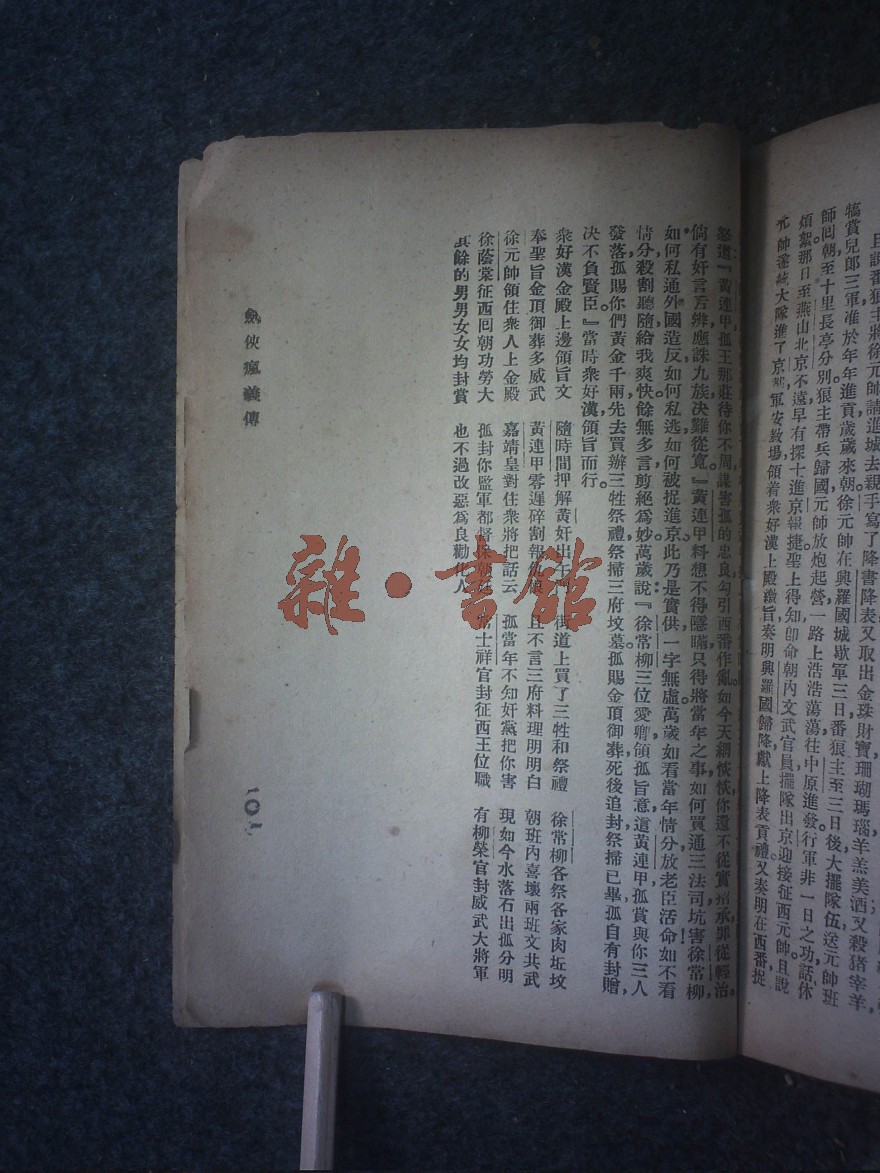 且説番狼主將徐元帥請進城去親手寫了降書降表又取出金珠財寶珊瑚瑪瑙羊羔美酒又殺猪宰羊，
犒賞兒郎三軍准於年年進貢歲歲來朝徐元帥在興羅國城歇軍三日番狼主至三日後大擺隊伍送元帥班
師囘朝至十里長亭分别狼主帶兵歸國元帥放炮起營一路上浩浩蕩蕩往中原進發行軍非一日之功話休
煩絮那日至燕山北京不遠早有探士進京報捷聖上得知卽命朝内文武官員擺隊出京迎接征西元帥且說
元帥進了京都軍安教場領着衆好漢上殿繳旨奏明興羅國歸降獻上降表貢禮又奏明在西番捉
怒道『黃連甲孤王那莊待你不周謀害孤的忠良勾引西番作亂如今天網恢恢你還不從實招承罪從輕治。
倘有奸言舌辨應誅九族决難從寬。』黃連甲料想不得隱瞞只得將當年之事如何買通三法司坑害徐常柳，
如何私通外國造反如何私逃如何被捉進京此乃是實供一字無虛萬歲如看當年情分放老臣活命如不看
情分殺割聽隨給我爽快餘無多言剪絕爲妙萬歲說：『徐常柳三位愛卿領孤旨意這黃連甲孤賞與你三人
發落孤賜你們黃金千兩先去買辦三牲祭禮祭掃三府坟墓。孤賜金頂御葬死後追封祭掃已畢孤自有封贈，
决不負賢臣。』當時衆好漢領旨而行。
衆好漢金殿上邊領旨文　隨時間押解黃奸出午門　街道上買了三牲和祭禮　徐常柳各祭各家肉坵坟
奉聖旨金頂御葬多威武　黃連甲零遲碎割報仇恨　且不言三府料理明明白　朝班内喜壞兩班文共武
徐元帥領住衆人上金殿　嘉靖皇對住衆將把話云　孤當年不知奸黨把你害　現如今水落石出孤分明
徐蔭棠征西囘朝功勞大　孤封你監軍都督保朝廷　常士祥官封征西王位職　有柳榮官封威武大將軍
其餘的男男女女均封賞　也不過改惡爲良勸化人
劍俠瘋義傳
一〇一
雜·書館